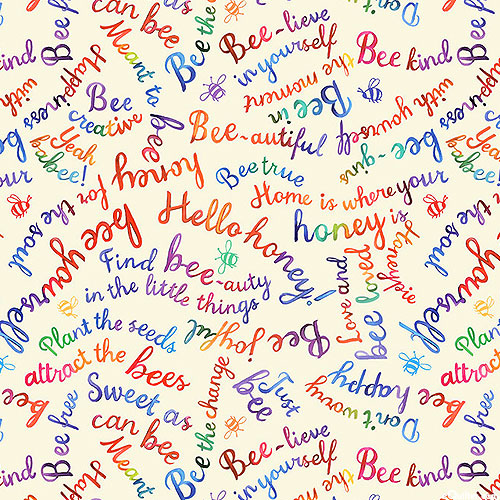 can bee
Meant to
bee
Bee free
Happiness
Bee the
Bee-lieve
in yourself
Bee in
the moment
Bee kind
kind
Bee
creative
Yeah
babee!
Bee-autiful
Bee true
Happiness
bee-gins
with yourself
with
your
honey for
the soul
Home is where your
honey is
Hello honey!
bee yourself
Find bee-auty
in the little things
Love and
bee loved
Honeypie
the soul
yourself
Plant the seeds
attract the bees
Bee joyful
Sweet as
can bee
Meant
Bee the change
Just
bee
Don't worry
bee happy
Plant
attract
bee
Bee free
Happ
Bee-lieve
in yourself
the
Bee kind
kind
Bee